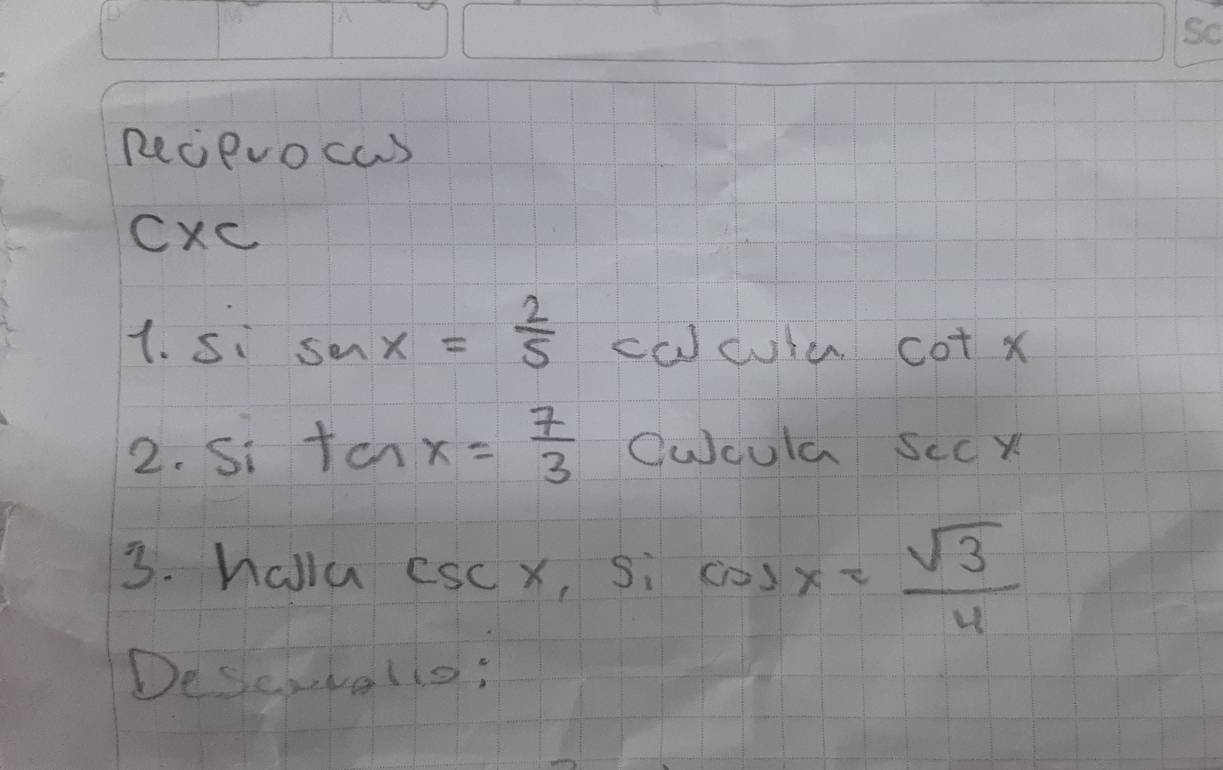 D M A
Sc
Reciprocas
CXC
1. Si sen x = 2/5 calcula cot x
2. Si tan x = 7/3 Calcula sec x
3. halla csc x, si cos x = √3/4
Desarrollo: